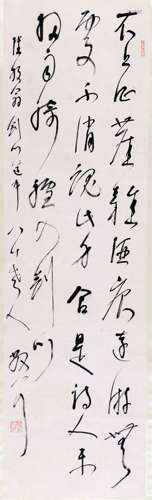 衣上征塵雜酒痕遠游無
處不消魂此身合是詩人未
細雨騎驢入劍門
陸放翁劍門道中 八十老人